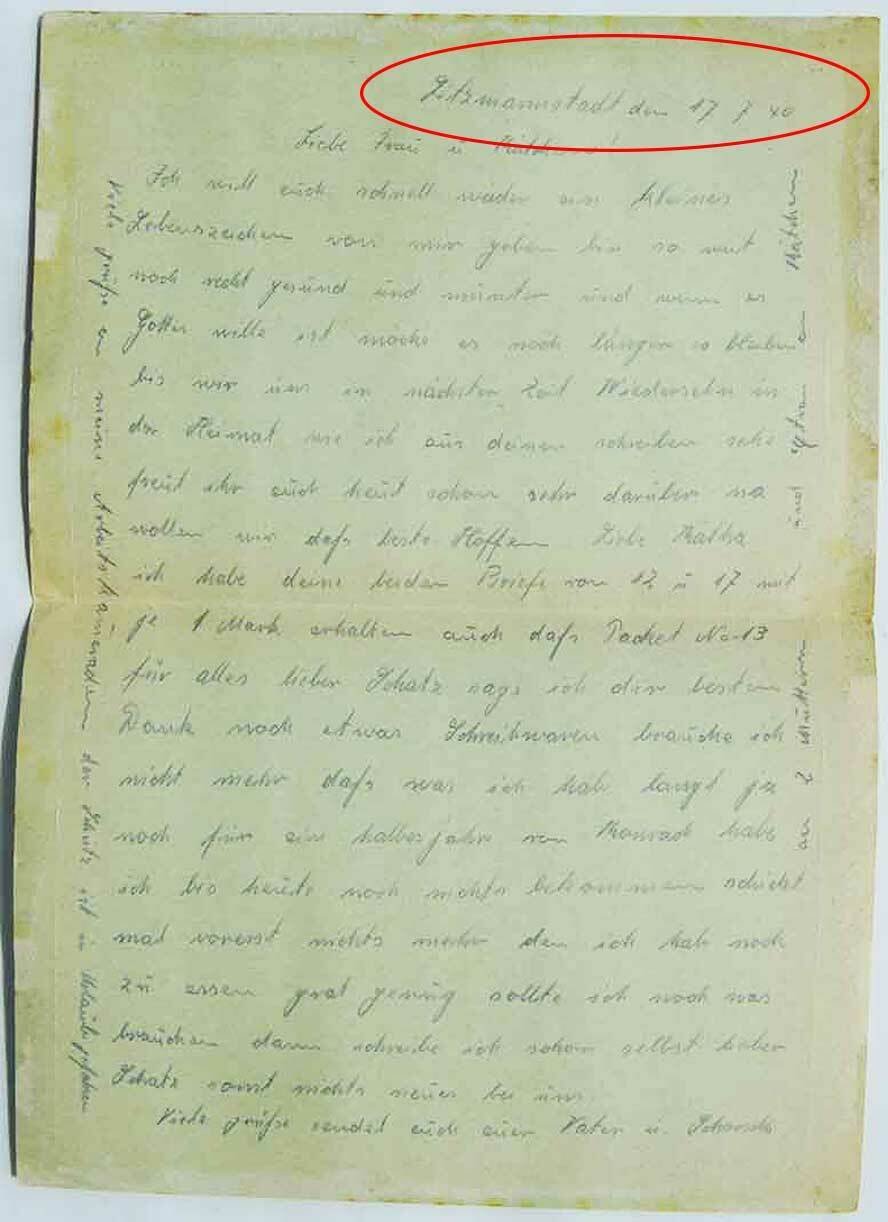 Litzmannstadt den 17 7 40
Liebe Frau u
Ich will euch schnell wieder ein kleines
Lebenszeichen von mir geben bin so weit
noch recht gesund und munter und wenn es
Gottes wille ist möchte es noch länger so bleiben
bis wir uns in nächster Zeit Wiedersehn in
der Heimat wie ich aus deinen schreiben sehe
freut ihr euch heut schon sehr darüber na
wollen wir dafs beste Hoffen Liebe Kätha
ich habe deine beiden Briefe vom 12 u 17 mit
je 1 Mark erhalten auch dafs Packet No 13
für alles lieber Schatz sage ich dir besten
Dank noch etwas Schreibwaren brauche ich
nicht mehr dafs was ich hab langt ja
noch für ein halbes jahr von Konrad habe
ich bis heute noch nichts bekommen schickt
mal vorerst nichts mehr den ich hab noch
zu essen grat genug sollte ich noch was
brauchen dann schreibe ich schon selbst lieber
Schatz sonst nichts neues bei uns
Viele grüfse sendet euch euer Vater u.
Viele grüfse an meine Arbeitskameraden der Schatz ist in Urlaub gefahren
an 2 Mütteren und Kätchen